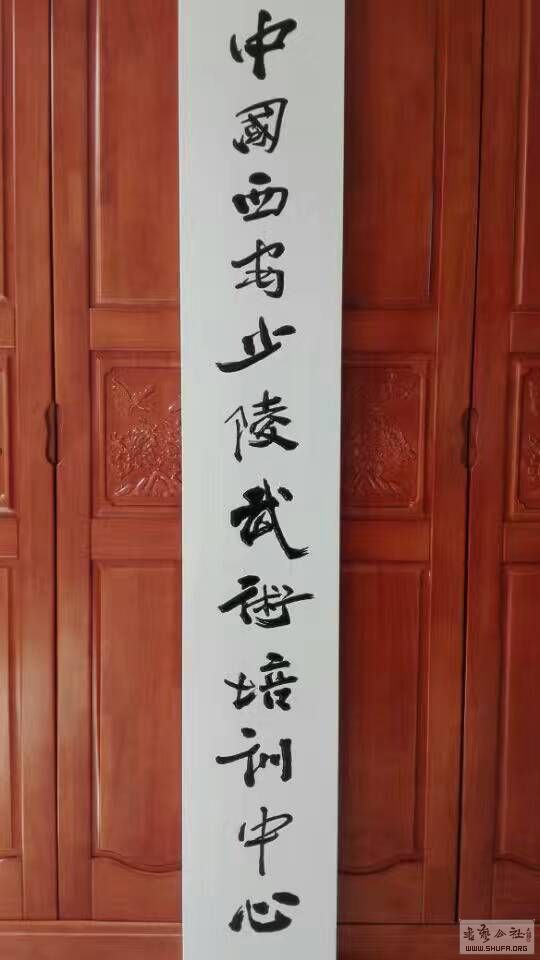 中國西安止陵武術培訓中心
书艺公社
WWW.SHUFA.ORG